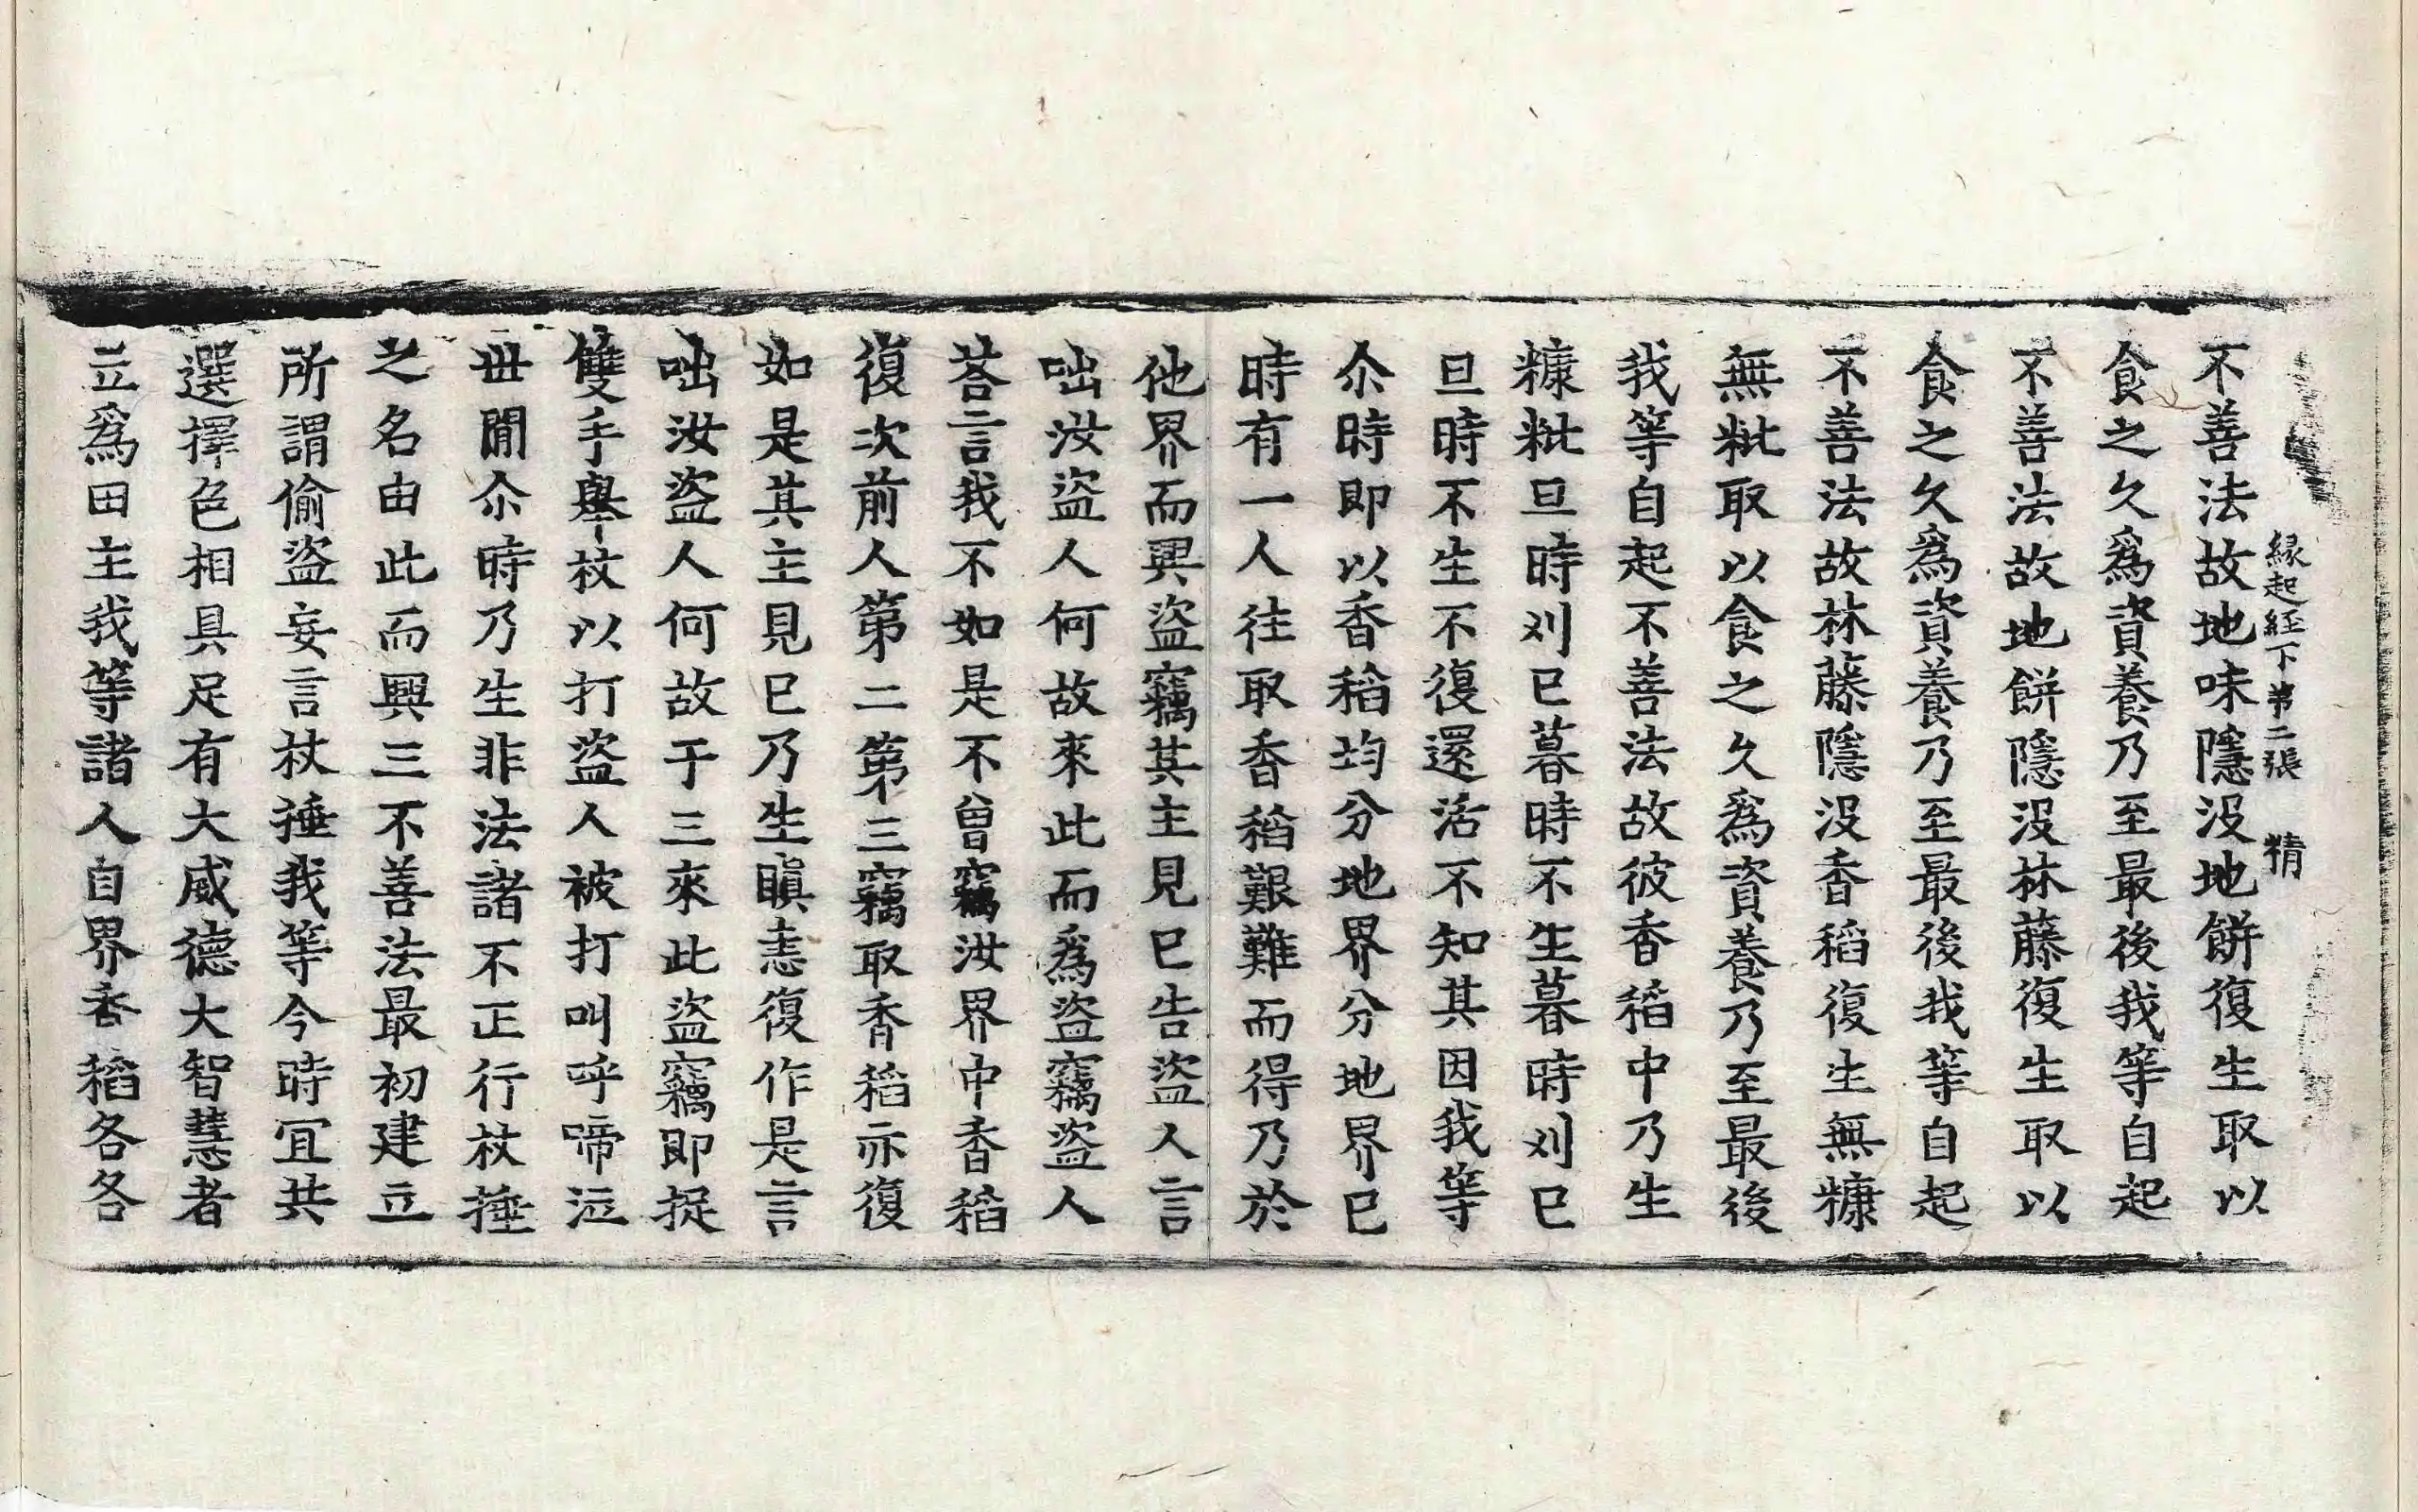 縁起経下第二張 精
不善法故地味隱沒地餅復生取以
食之久爲資養乃至最後我等自起
不善法故地餅隱沒林藤復生取以
食之久爲資養乃至最後我等自起
不善法故林藤隱沒香稻復生無糠
無粃取以食之久爲資養乃至最後
我等自起不善法故彼香稻中乃生
糠粃旦時刈已暮時不生暮時刈已
旦時不生不復還活不知其因我等
尒時即以香稻均分地界分地界已
時有一人往取香稻艱難而得乃於
他界而興盜竊其主見已告盜人言
咄汝盜人何故來此而爲盜竊盜人
荅言我不如是不曾竊汝界中香稻
復次前人第二第三竊取香稻亦復
如是其主見已乃生瞋恚復作是言
咄汝盜人何故于三來此盜竊即捉
雙手舉杖以打盜人被打叫呼啼泣
世閒尒時乃生非法諸不正行杖捶
之名由此而興三不善法最初建立
所謂偷盜妄言杖捶我等今時冝共
選擇色相具足有大威德大智慧者
立爲田主我等諸人自界香稻各各